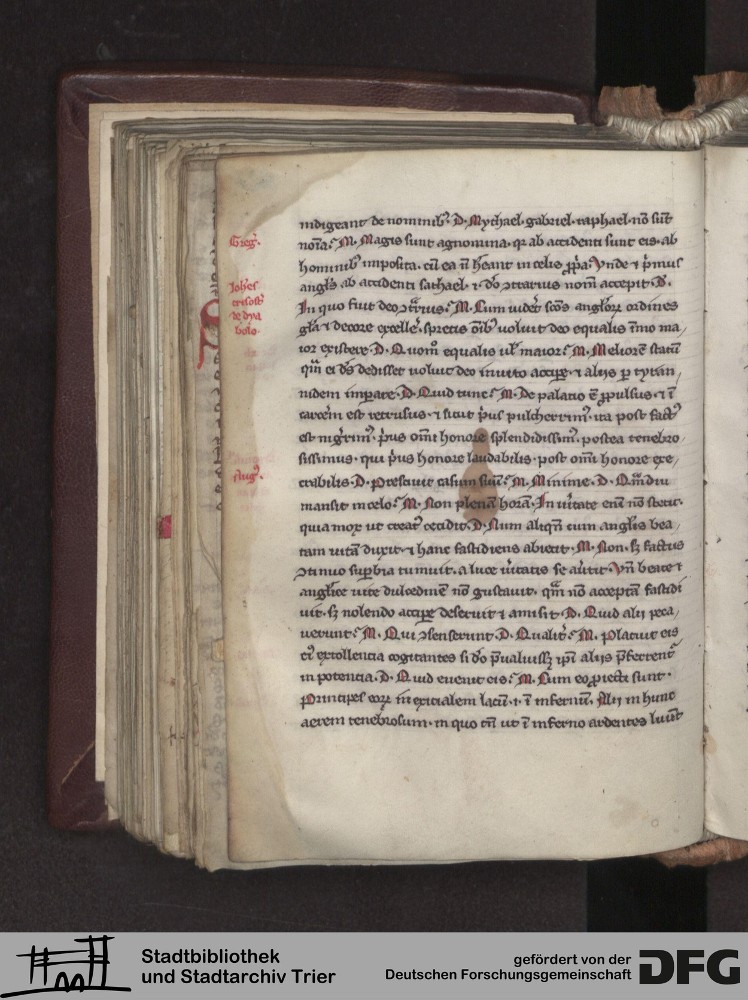 Greg᷒.
Joh̅es
crisost᷒
de dya
bolo.
Aug᷒.
indigeant de nominib᷒. D. Mychael. gabriel. raphael. no̅ su̅t
no̅ia. M. Magis sunt agnomina. qr ab accidenti sunt eis. ab
hominib᷒ imposita. cu̅ ea n̅ he̅ant in celis p̅pa. Vnde ⁊ p̅mus
angl̅s ab accidenti sathael. ⁊ d̅o ꝯtrarius nom̅ accepit. D.
In quo fuit deo ꝯt̅rius. M. Cum uider̅ sc̅os angl̅oꝝ ordines
gl̅a ⁊ decore excelle̅. spretis o̅ib᷒ uoluit deo equalis i̅mo ma
ior existere. D. Quom̅o equalis ul̅ maior. M. Meliore̅ statu̅
qm̅ ei d̅s dedisset uoluit deo inuito accipe̅. ⁊ aliis p tyran
nidem impare. D. Quid tunc. M. De palacio e̅ p̅pulsus. ⁊ i̅
carcer̅m est retrusus. ⁊ sicut p̅us pulcherrim᷒. ita post fact᷒
est nigrrim᷒. p̅us om̅i honore splendidissim᷒. postea tenebro
sissimus. qui p̅us honore laudabilis. post om̅i honore exe
crabilis. D. Presciuit casum suu̅. M. Minime. D. Qm̅diu
mansit in celo. M. Non plena̅ hora̅. In u̅itate eni̅ no̅ stetit.
quia mox ut creat᷒ cecidit. D. Num aliqn̅ cum angl̅is bea
tam uita̅ duxit. ⁊ hanc fastidiens abiecit. M. Non. sꝫ factus
ꝯtinuo sup̅bia tumuit. a luce u̅itatis se au̅tit. Vn̅ beate ⁊
angl̅ice uite dulcedine̅ no̅ gustauit. qm̅ no̅ accepta̅ fastidi
uit. sꝫ nolendo accipe̅ deseruit ⁊ amisit. D. Quid alii pecca
uerunt. M. Qui ꝯsenserunt. D. Qualit̅. M. Placuit eis
ei᷒ excellencia cogitantes si d̅o p̅ualuissꝫ ip̅i aliis p̅ferrent᷒
in potencia. D. Quid euenit eis. M. Cum eo p̅iecti sunt.
Principes eoꝝ in exicialem lacu̅. ⁊. i̅ infernu̅. Alii in hunc
aerem tenebrosum. in quo tn̅ ut i̅ inferno ardentes luu̅t
Stadtbibliothek
und Stadtarchiv Trier
gefördert von der
Deutschen Forschungsgemeinschaft
DFG